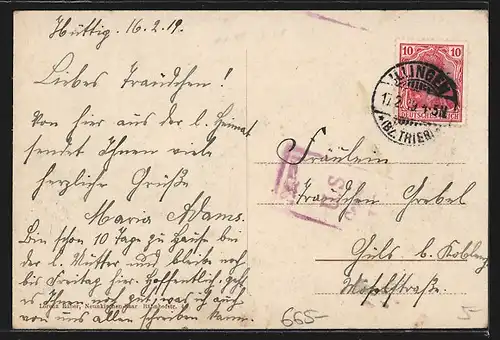 Hüttig. 16.2.19.
Liebes Traudchen!
Von hier aus der l. Heimat
sendet Ihnen viele
herzliche Grüße
Maria Adams.
Bin schon 10 Tage zu Hause bei
der l. Mutter und bleibe noch
bis Freitag hier. Hoffentlich geht
es Ihnen noch gut, was ich auch
von uns allen schreiben kann.
Neunkirchen-Saar
10 10
DEUTSCHES REICH
ILLINGEN
(BZ. TRIER)
Fräulein
Traudchen Grebel
Güls b. Koblenz
Moselstraße.
665-
5-